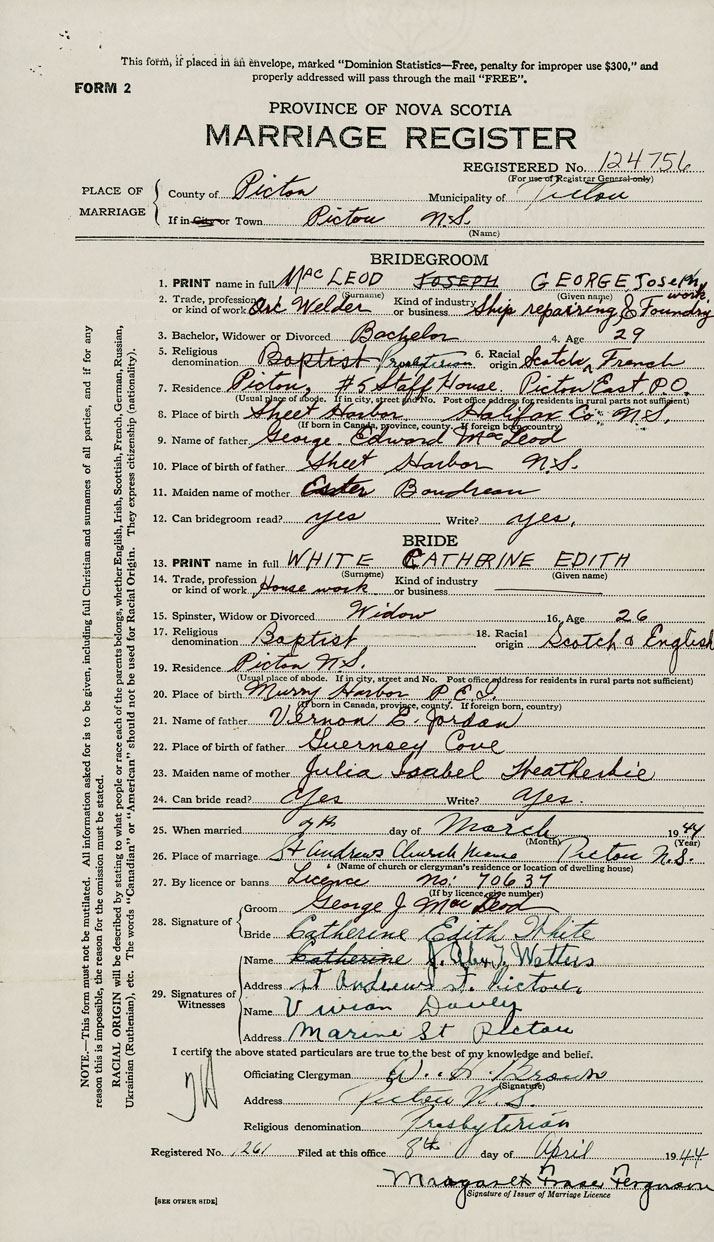 This form, if placed in an envelope, marked "Dominion Statistics—Free, penalty for improper use $300," and
properly addressed will pass through the mail "FREE".
FORM 2
PROVINCE OF NOVA SCOTIA
MARRIAGE REGISTER
REGISTERED No. 124756
(For use of Registrar General only)
PLACE OF MARRIAGE County of Pictou Municipality of Pictou
If in City or Town Pictou N.S.
(Name)
BRIDEGROOM
1. PRINT name in full MacLEOD JOSEPH GEORGE Joseph
(Surname) (Given name)
2. Trade, profession or kind of work Arc Welder Kind of industry or business Ship repairing, & Foundry work,
3. Bachelor, Widower or Divorced Bachelor 4. Age 29
5. Religious denomination Baptist Presbyterian 6. Racial origin Scotch, French
7. Residence Pictou, #5 Staff House, Pictou East P.O.
(Usual place of abode. If in city, street and No. Post office address for residents in rural parts not sufficient)
8. Place of birth Sheet Harbor Halifax Co. N.S.
(If born in Canada, province, county. If foreign born, country)
9. Name of father George Edward MacLeod
10. Place of birth of father Sheet Harbor N.S.
11. Maiden name of mother Ester Boudreau
12. Can bridegroom read? yes Write? yes,
BRIDE
13. PRINT name in full WHITE CATHERINE EDITH
(Surname) (Given name)
14. Trade, profession or kind of work House work Kind of industry or business
15. Spinster, Widow or Divorced Widow 16. Age 26
17. Religious denomination Baptist 18. Racial origin Scotch & English
19. Residence Pictou N.S.
(Usual place of abode. If in city, street and No. Post office address for residents in rural parts not sufficient)
20. Place of birth Murry Harbor P.E.I.
(If born in Canada, province, county. If foreign born, country)
21. Name of father Vernon E. Jordan
22. Place of birth of father Guernsey Cove
23. Maiden name of mother Julia Isabel Heatherbie
24. Can bride read? Yes Write? Yes.
25. When married day of March 1944
(Month) (Year)
26. Place of marriage St Andrews Church Pictou N.S.
(Name of church or clergyman's residence or location of dwelling house)
27. By licence or banns Licence no. 70637
(If by licence, give number)
28. Signature of Groom George J MacLeod
Bride Catherine Edith White
29. Signatures of Witnesses Name Catherine J. Watters
Address St Andrews St. Pictou,
Name Vivian
Address Marine St Pictou
I certify the above stated particulars are true to the best of my knowledge and belief.
Officiating Clergyman
(Signature)
Address Pictou N.S.
Religious denomination Presbyterian
Registered No. 261 Filed at this office 8th day of April 1944
Margaret Fraser Ferguson
Signature of Issuer of Marriage Licence
[SEE OTHER SIDE]
NOTE.—This form must not be mutilated. All information asked for is to be given, including full Christian and surnames of all parties, and if for any
reason this is impossible, the reason for the omission must be stated.
RACIAL ORIGIN will be described by stating to what people or race each of the parents belongs, whether English, Irish, Scottish, French, German, Russian,
Ukrainian (Ruthenian), etc. The words "Canadian" or "American" should not be used for Racial Origin. They express citizenship (nationality).